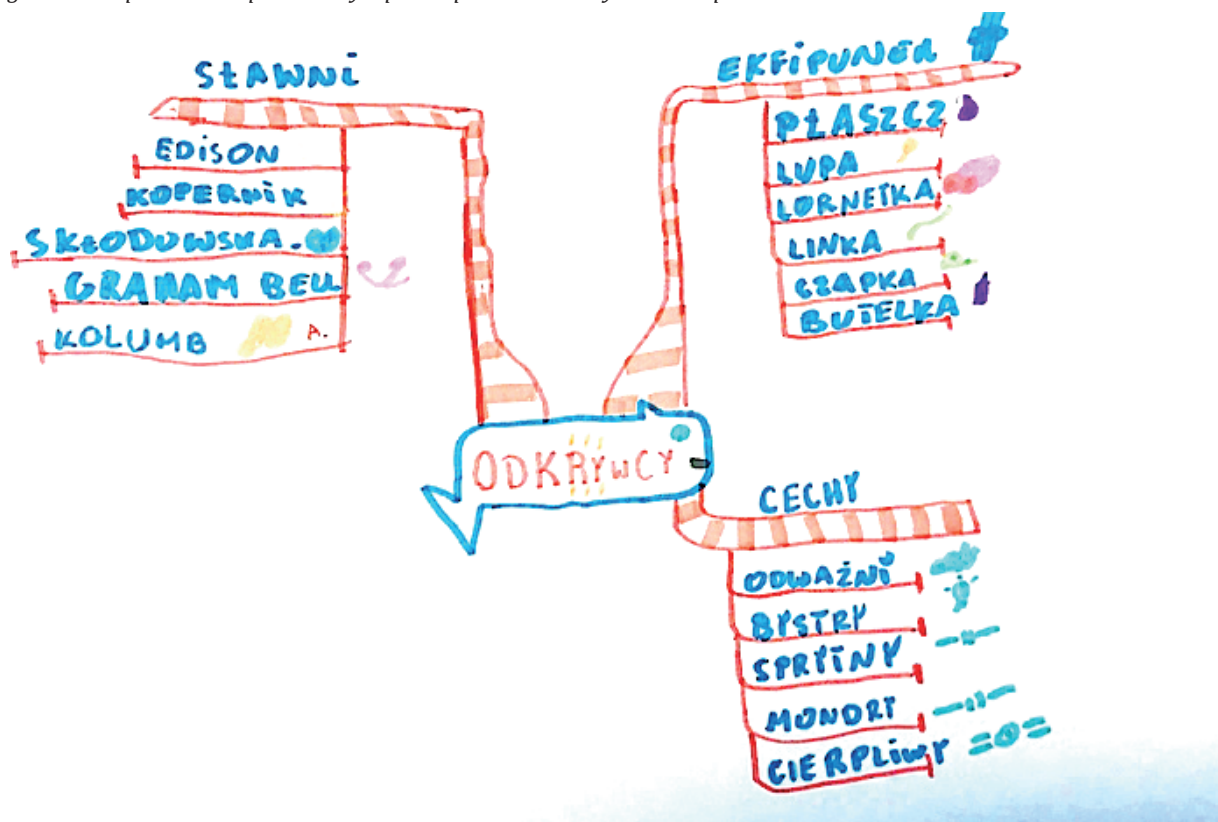 SŁAWNI
EDISON
KOPERNIK
SKŁODOWSKA.
GRAHAM BELL
KOLUMB
A.
EKFIPUNER
PŁASZCZ
LUPA
LORNETKA
LINKA
CZAPKA
BUTELKA
ODKRYWCY
CECHY
ODWAŻNI
BYSTRY
SPRYTNY
MONDRY
CIERPLIWY